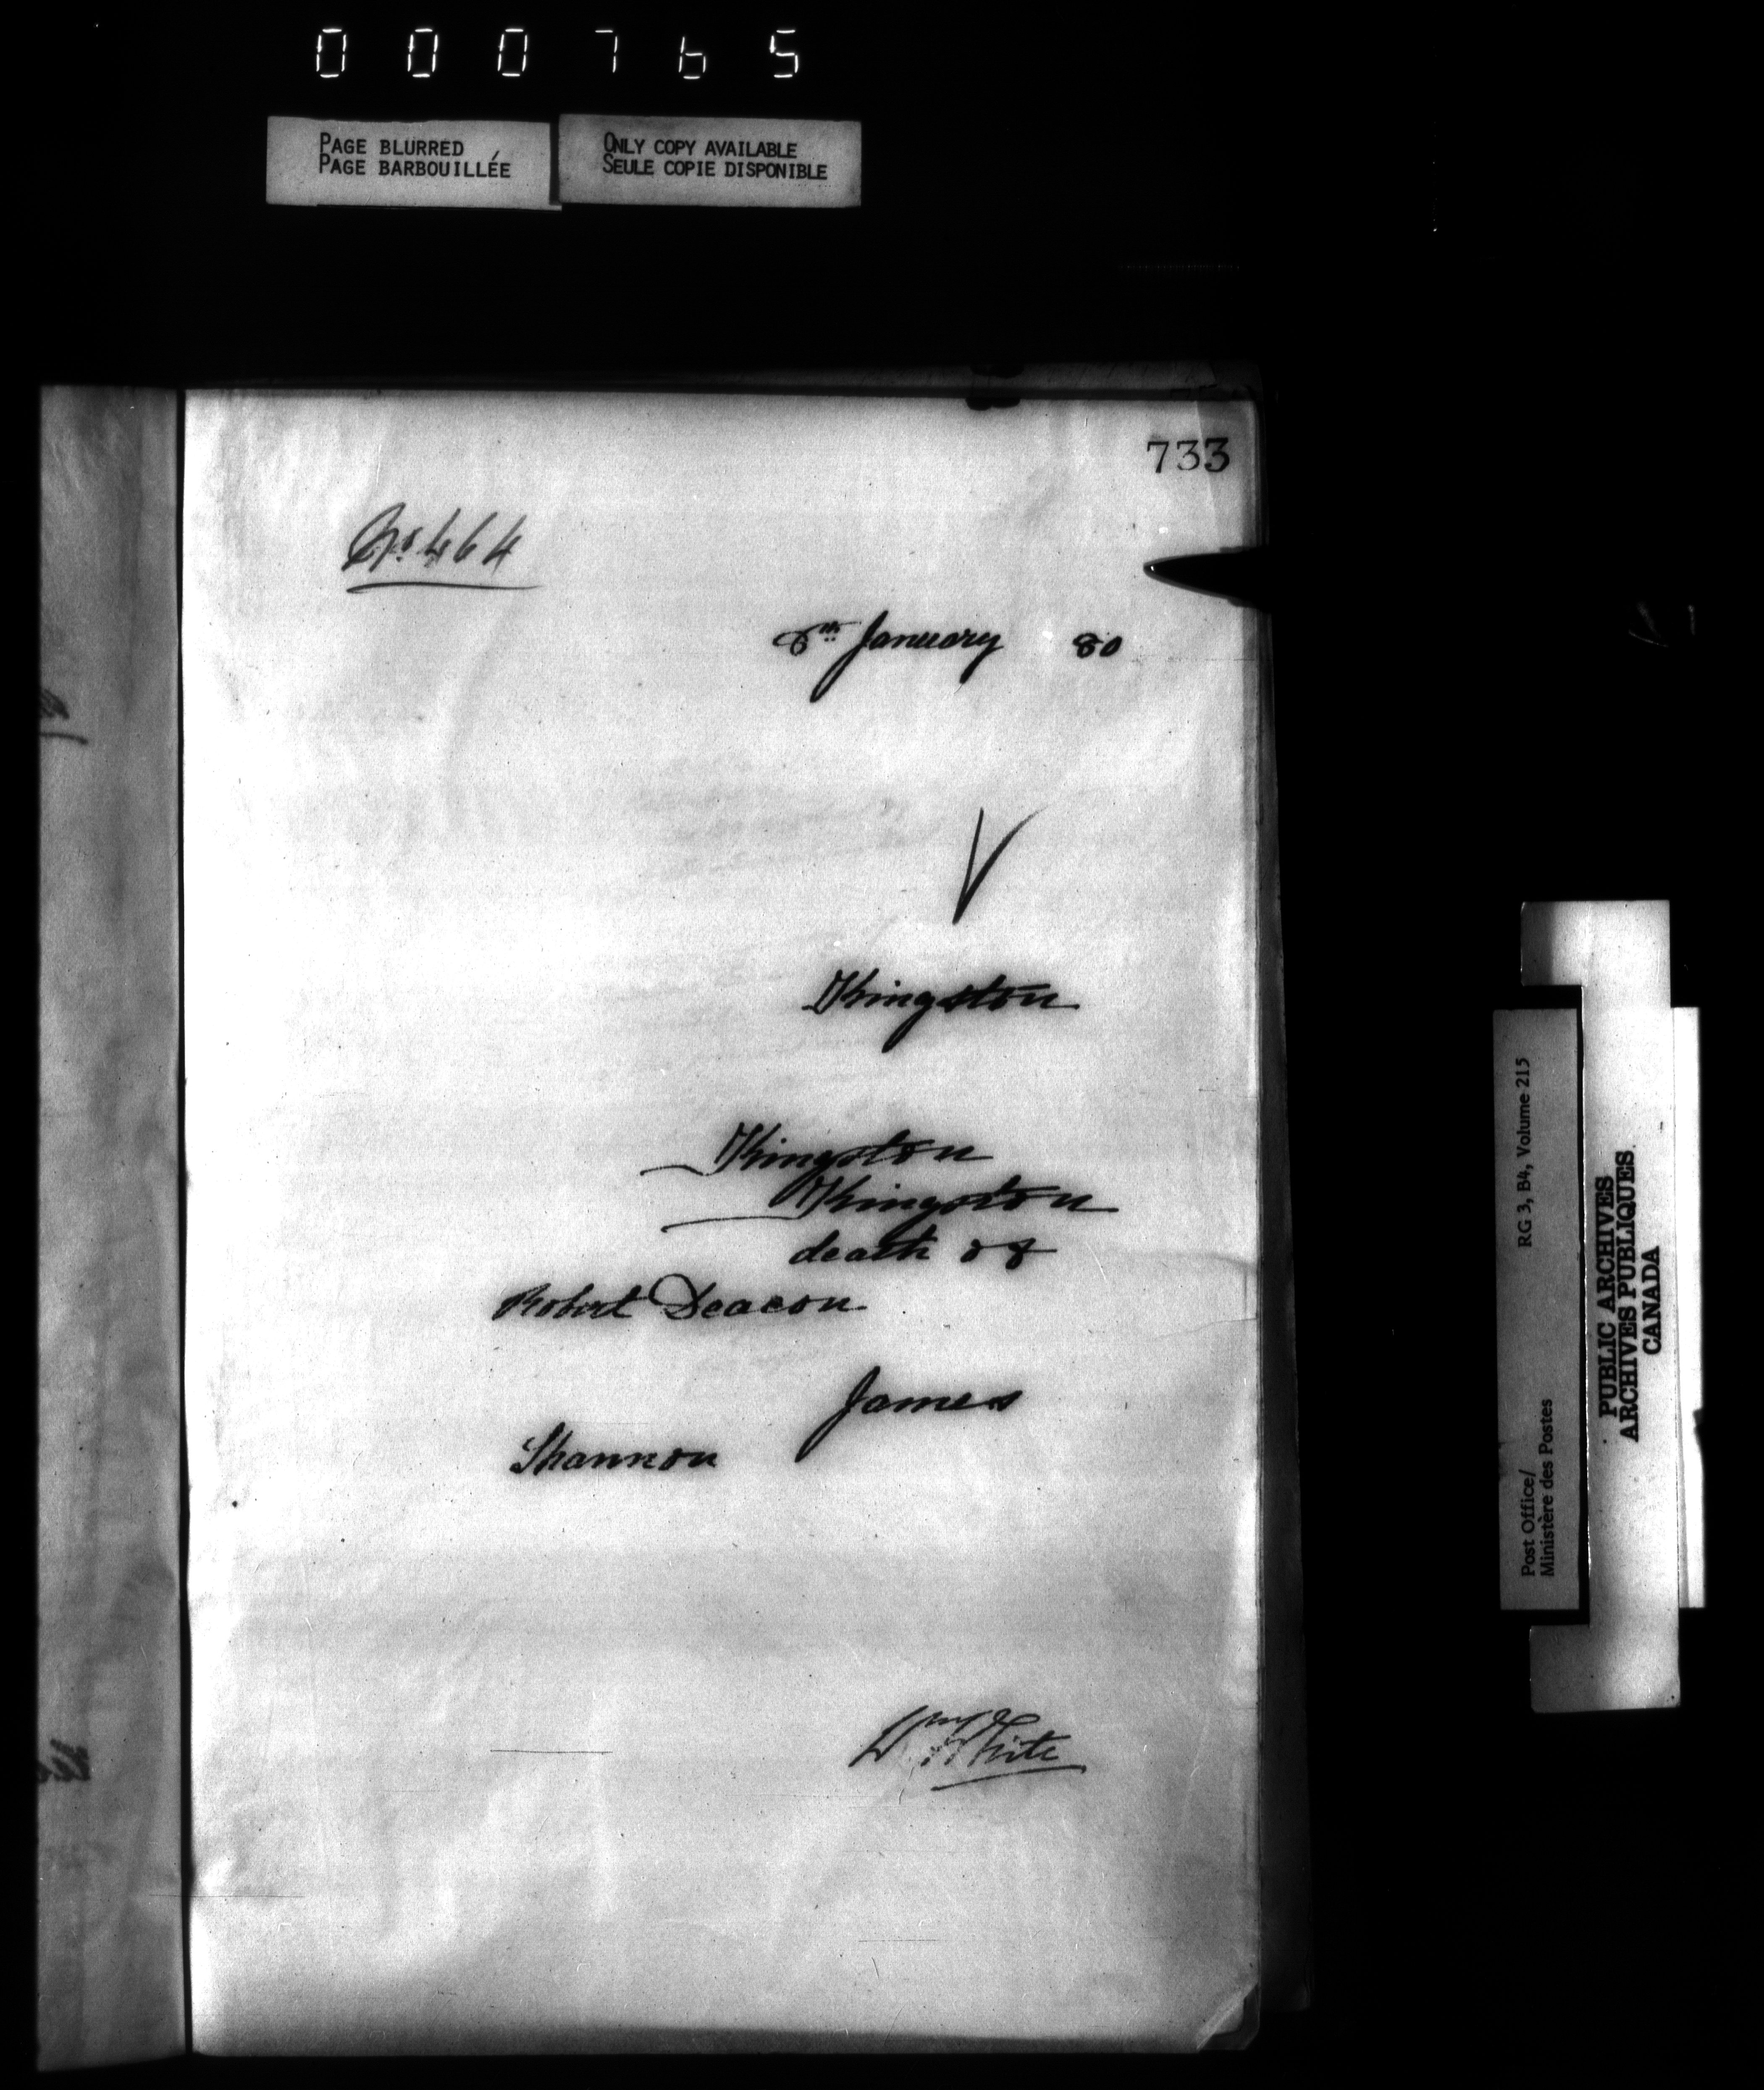 000765
PAGE BLURRED
PAGE BARBOUILLÉE
ONLY COPY AVAILABLE
SEULE COPIE DISPONIBLE
733
No. 464
8th January 80
Kingston
Kingston
Kingston
death of
Robert Deacon
James
Shannon
Wm White
Post Office/ RG 3, B4, Volume 215
Ministère des Postes
PUBLIC ARCHIVES
ARCHIVES PUBLIQUES
CANADA